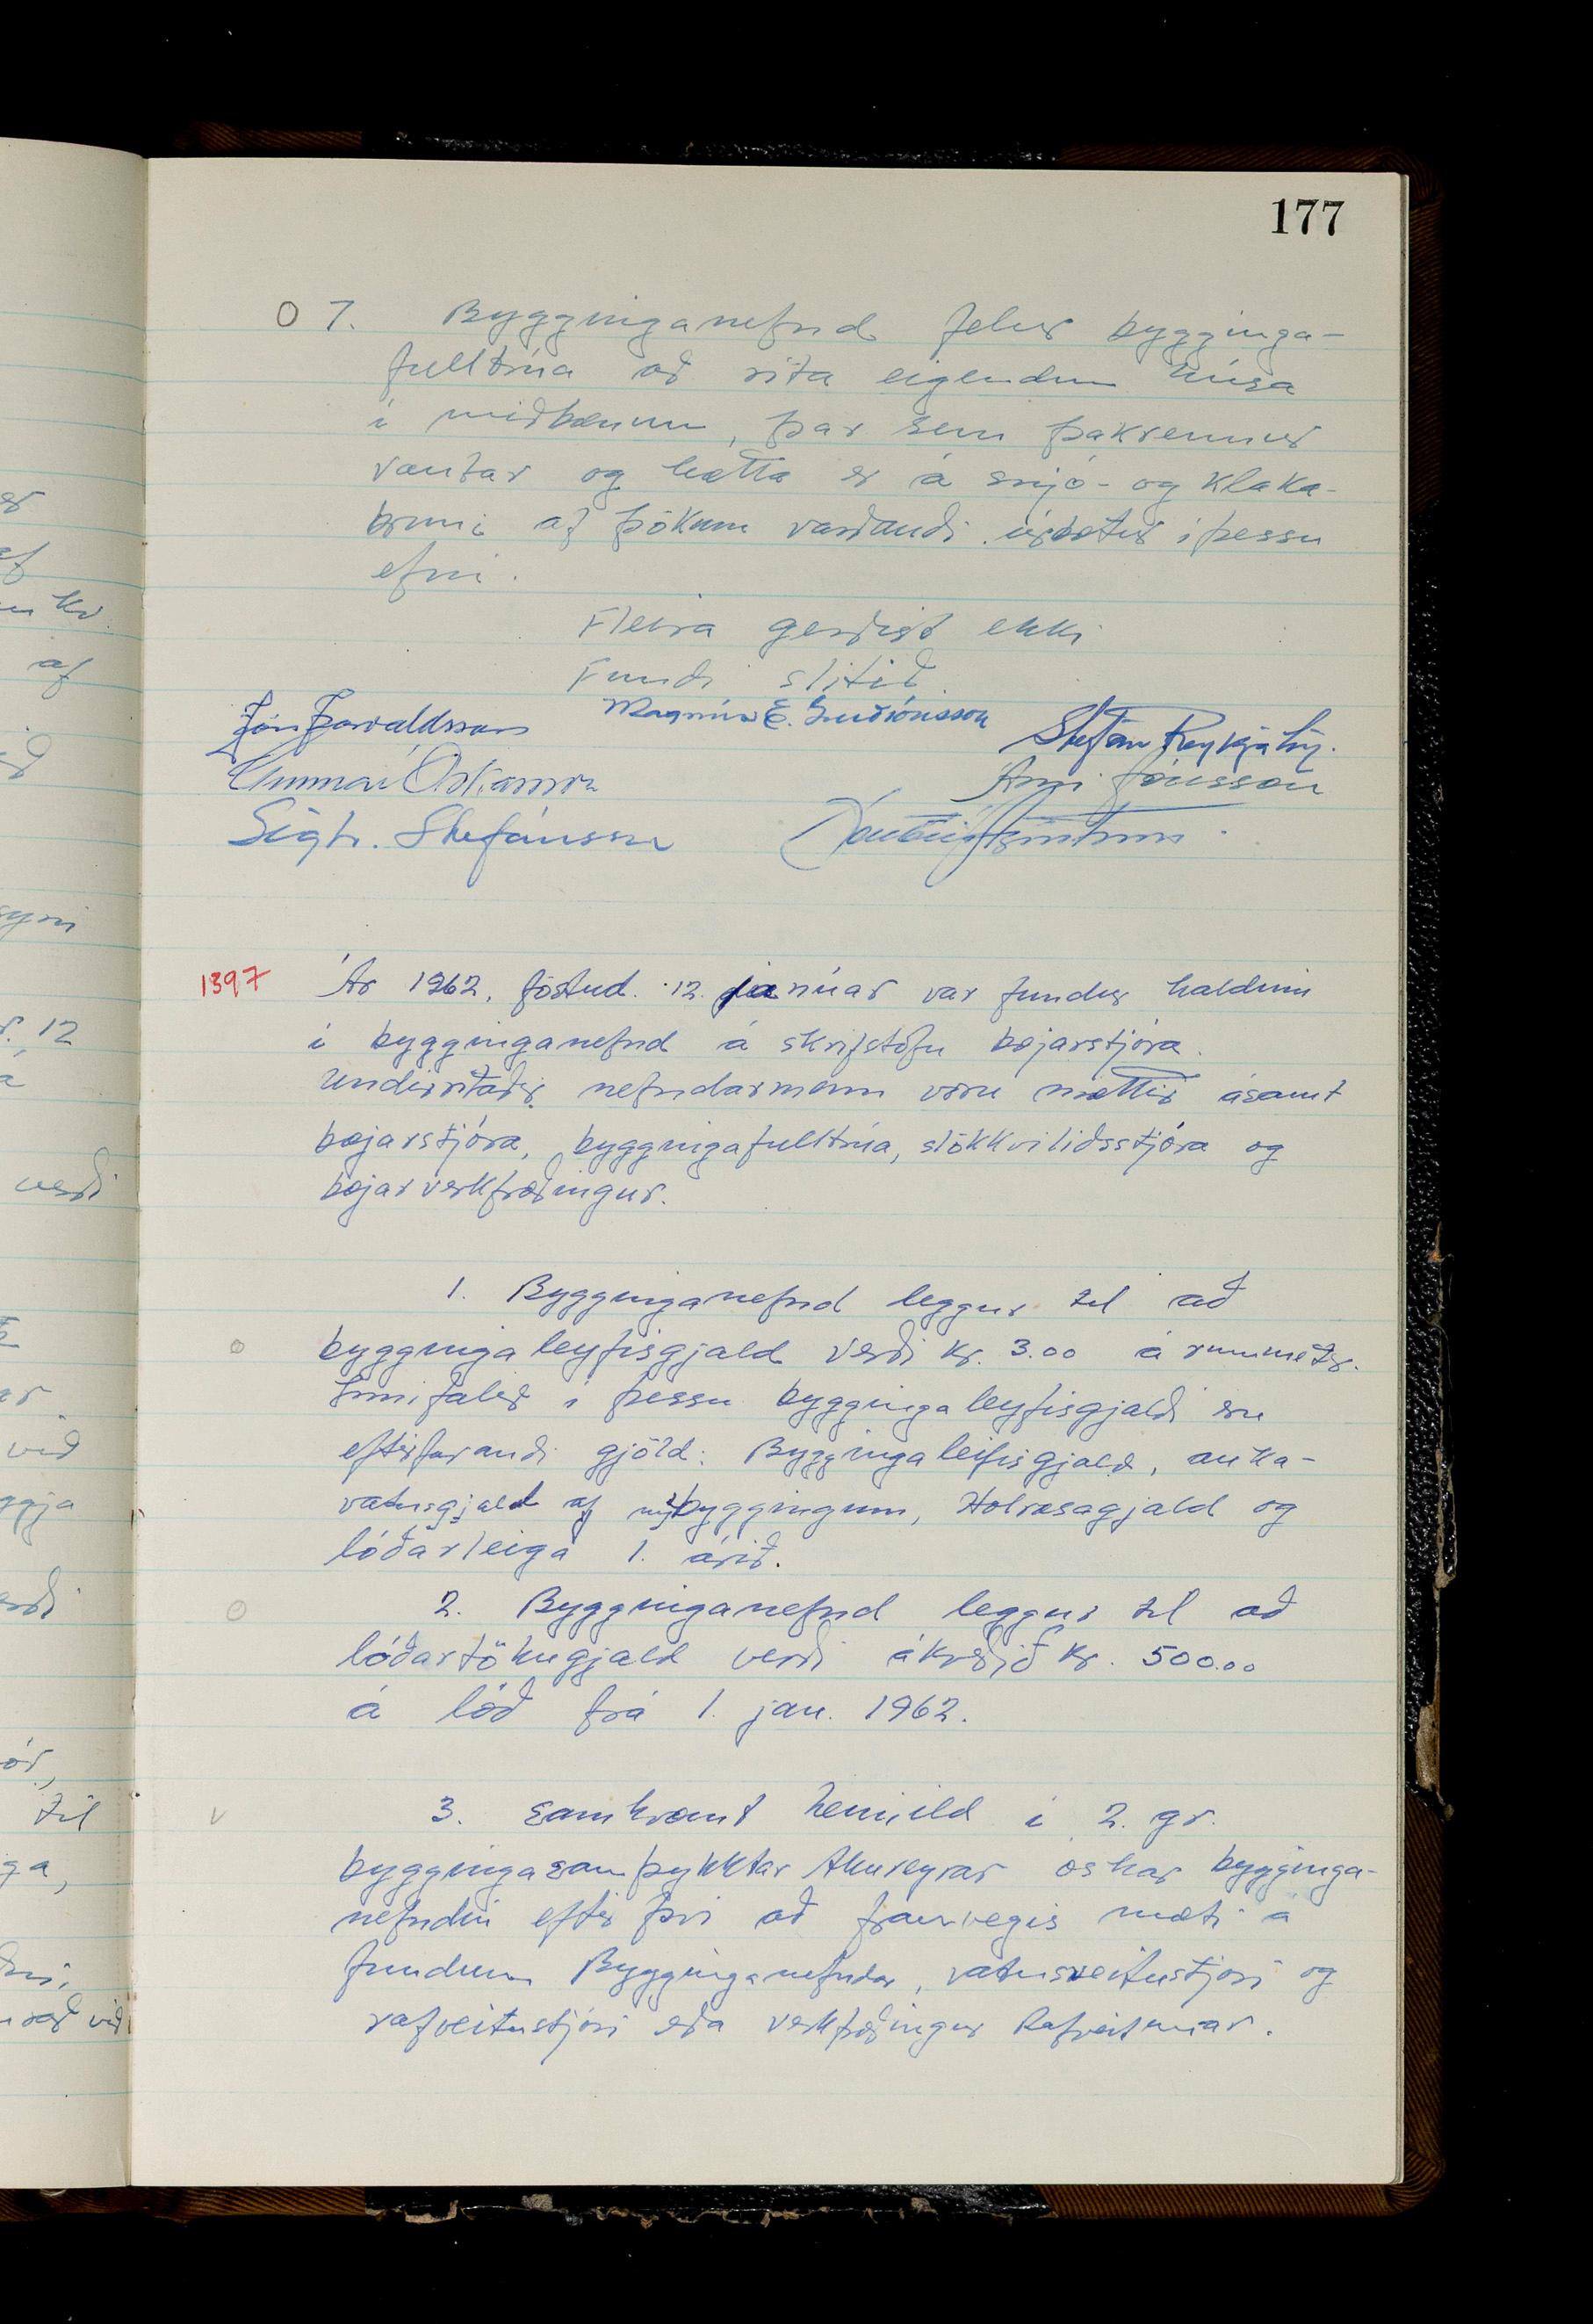 177
O 7. Bygginganefnd felur bygginga-
fulltrúa að rita eigendum húsa
í miðbænum, þar sem þakrennur
vantar og hætta er á snjó- og klaka-
hruni af þökum varðandi úrbætur í þessu
efni.
Fleira gerðist ekki
Fundi slitið.
Jón Þorvaldsson Magnús E. Guðjónsson Stefán Reykjalín.
Gunnar Óskarsson Árni Jónsson
Sigtr. Stefánsson
1397 Ár 1962, föstud. 12. janúar var fundur haldinn
í bygginganefnd á skrifstofu bæjarstjóra.
Undirritaðir nefndarmenn voru mættir ásamt
bæjarstjóra, byggingafulltrúa, slökkviliðsstjóra og
bæjarverkfræðingur.
1. Bygginganefnd leggur til að
o byggingaleyfisgjald verði kr. 3.00 á rúmmetr.
Innifalið í þessu byggingaleyfisgjaldi eru
eftirfarandi gjöld: Byggingaleifisgjald, auka-
vatnsgjald af nýbyggingum, Holræsagjald og
lóðarleiga 1. árið.
o 2. Bygginganefnd leggur til að
lóðartökugjald verði ákveðið kr. 500.00
á lóð frá 1. jan. 1962.
v 3. Samkvæmt heimild í 2. gr.
byggingasamþykktar Akureyrar óskar bygginga-
nefndin eftir því að framvegis mæti á
fundum Bygginganefndar, vatnsveitustjóri og
rafveitustjóri eða verkfræðingur Rafveitunnar.